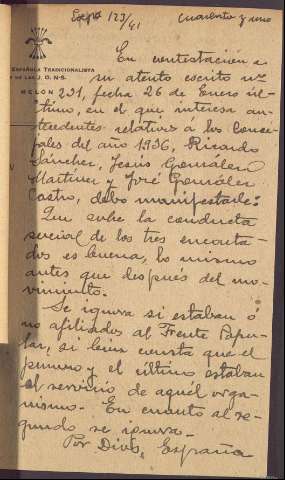 Expte 123/41
Cuarenta y uno
Española Tradicionalista
y de las J. O. N-S.
En contestación a
su atento escrito nº
MELON 231, fecha 26 de Enero úl-
timo, en el que interesa an-
tecedentes relativos á los Conce-
jales del año 1936, Ricardo
Sánchez, Jesús González
Martínez y José González
Castro, debo manifestarle:
Que sobre la conducta
social de los tres encarta-
dos es buena, lo mismo
antes que después del mo-
vimiento.
Se ignora si estaban ó
no afiliados al Frente Popu-
lar, si bien consta que el
primero y el último estaban
al servicio de aquél orga-
nismo. En cuanto al se-
gundo se ignora.
Por Dios, España